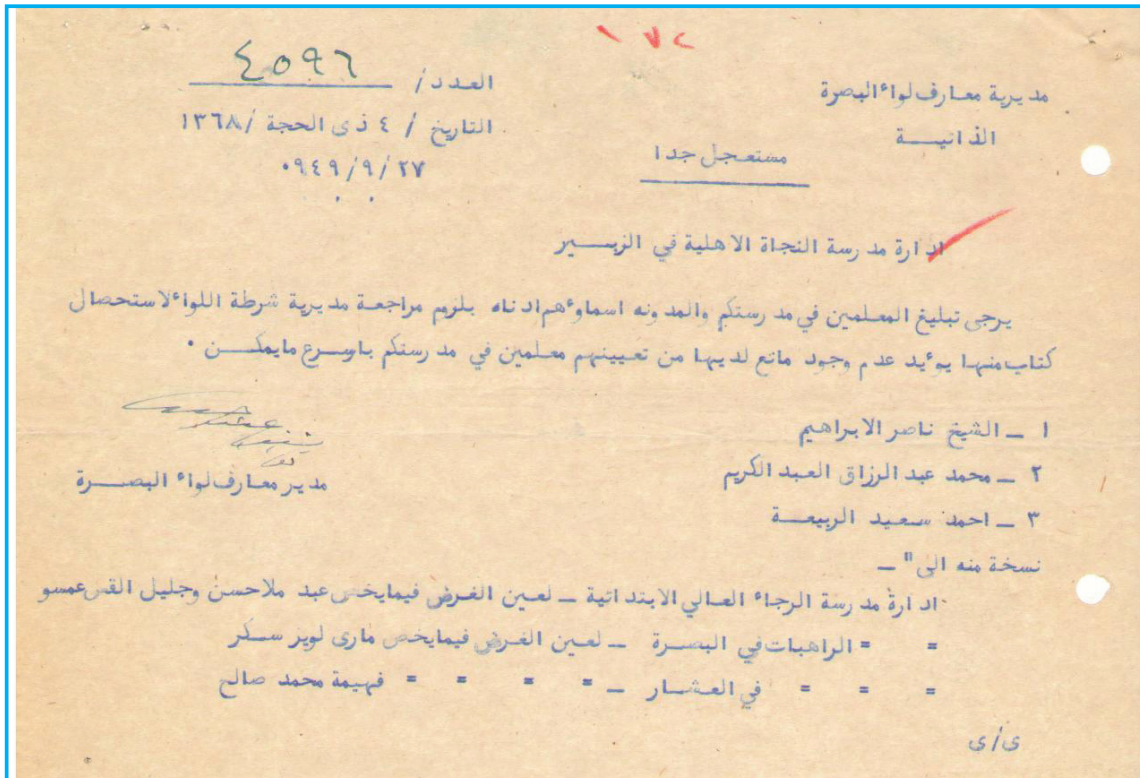 ١٧٢
مديرية معارف لواء البصرة
العدد / ٤٥٩٦
الذاتيـــة
التاريخ / ٤ ذى الحجة /١٣٦٨
مستعجل جدا
٠٩٤٩/٩/٢٧
ادارة مدرسة النجاة الاهلية في الزبـــير
يرجى تبليغ المعلمين في مدرستكم والمدونه اسماوءهم ادناه بلزوم مراجعة مديرية شرطة اللواء لاستحصال
كتاب منها يوءيد عدم وجود مانع لديها من تعيينهم معلمين في مدرستكم باسرع مايمكـــن .
١ ــ الشيخ ناصر الابراهيم
٢ ــ محمد عبد الرزاق العبد الكريم
مدير معارف لواء البصــــرة
٣ ــ احمد سعيد الربيعــة
نسخة منه الى" ــ
ادارة مدرسة الرجاء العالي الابتدائية ــ لعين الغرض فيما يخص عبد ملاحسن وجليل القس عمسو
= = الراهبات في البصـــرة ــ لعين الغرض فيمايخص مارى لويز سكر
= = = في العشـــار ــ = = = = فهيمة محمد صالح
ى/ى